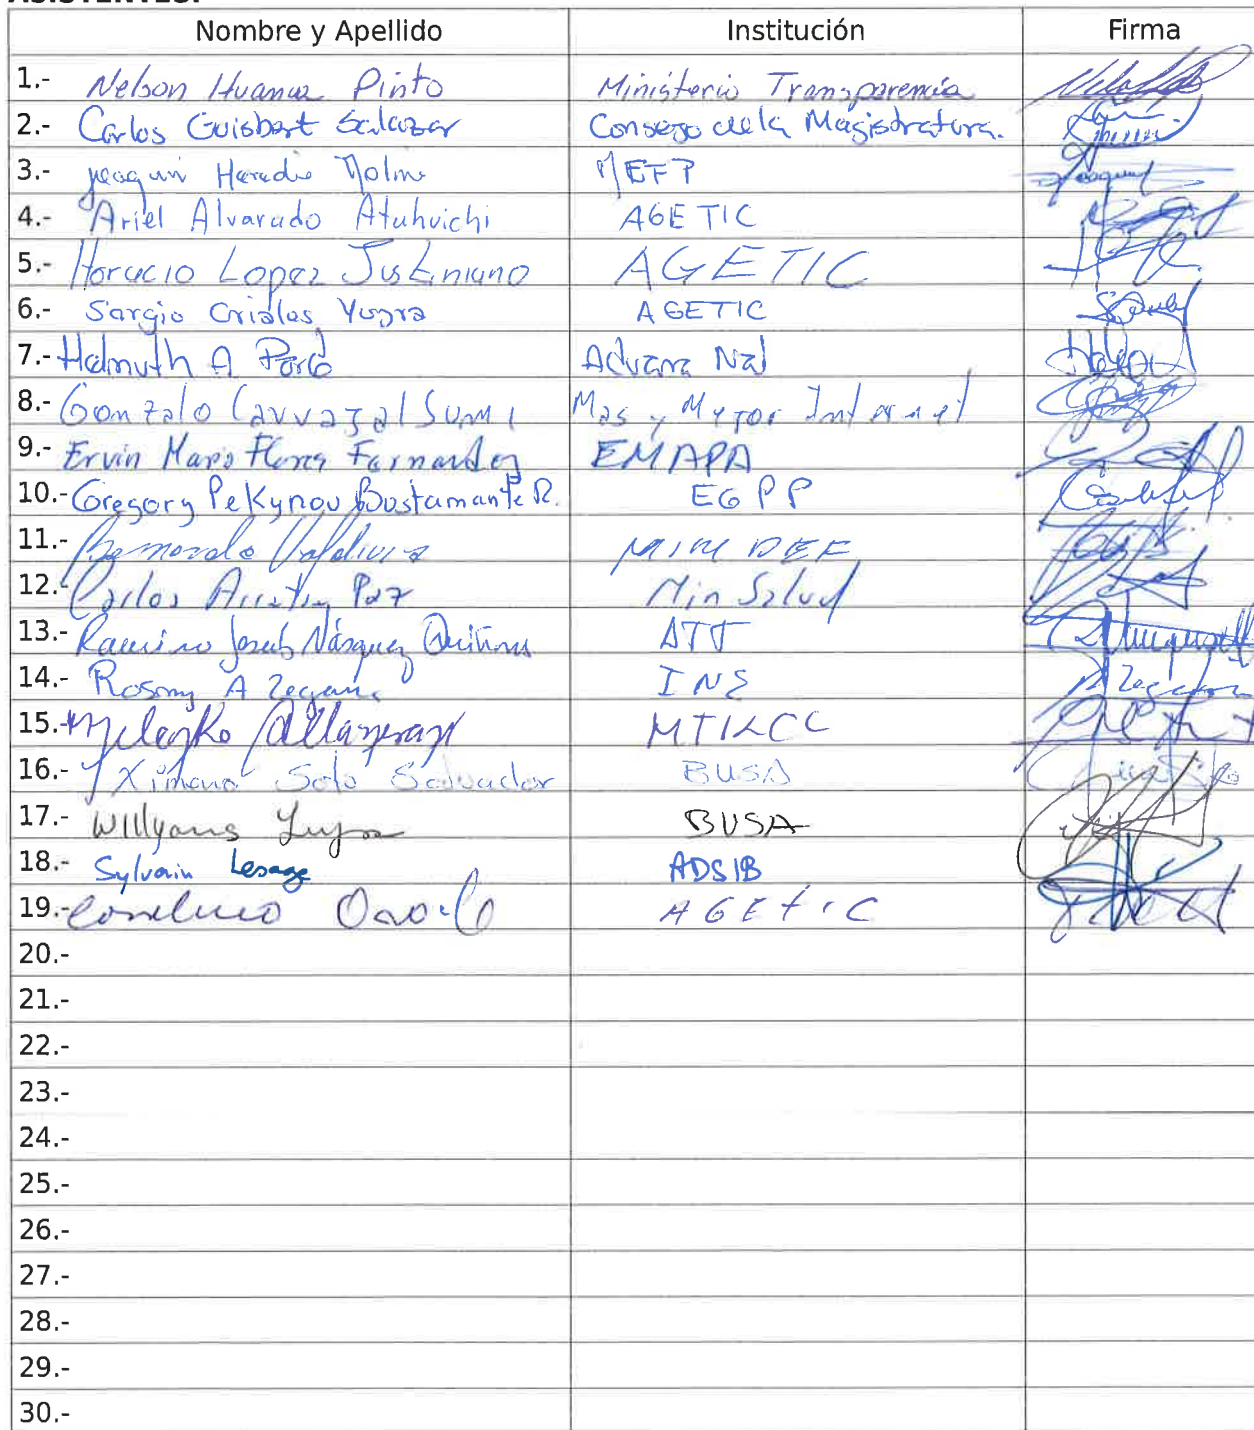 ASISTENTES:
Nombre y Apellido Institución Firma
1.- Nelson Huanca Pinto Ministerio Transparencia
2.- Carlos Guisbert Salazar Consejo de la Magistratura.
3.- Joaquin Heredia Molina MEFP
4.- Ariel Alvarado Atahuichi AGETIC
5.- Horacio Lopez Justiniano AGETIC
6.- Sergio Criales Yugra AGETIC
7.- Helmuth A Aduana Nal
8.- Gonzalo Carvajal Sumi Mas y Mejor Internet
9.- Ervin Mario Flores Fernandez EMAPA
10.- Gregory Pekynov Bustamante R. EGPP
11.- Bernardo Valdivia MINDEF
12.- Carlos Paz Min Salud
13.- Ramiro Vásquez ATT
14.- Rosmy A Zegarra INE
15.- MTILCC
16.- Ximena Soto Salvador BUSA
17.- Willyams BUSA
18.- Sylvain Lesage ADSIB
19.- AGETIC
20.-
21.-
22.-
23.-
24.-
25.-
26.-
27.-
28.-
29.-
30.-